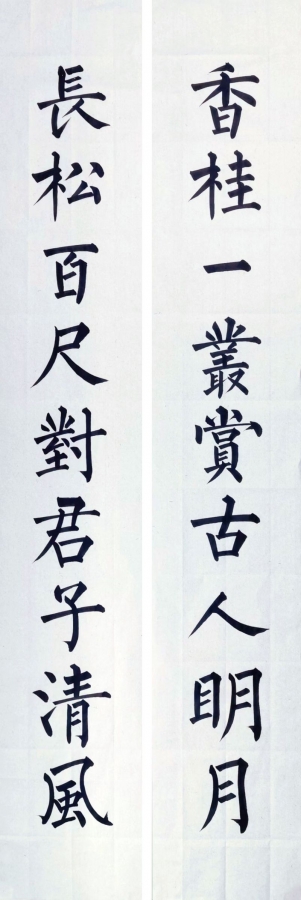 香桂一叢賞古人明月
長松百尺對君子清風